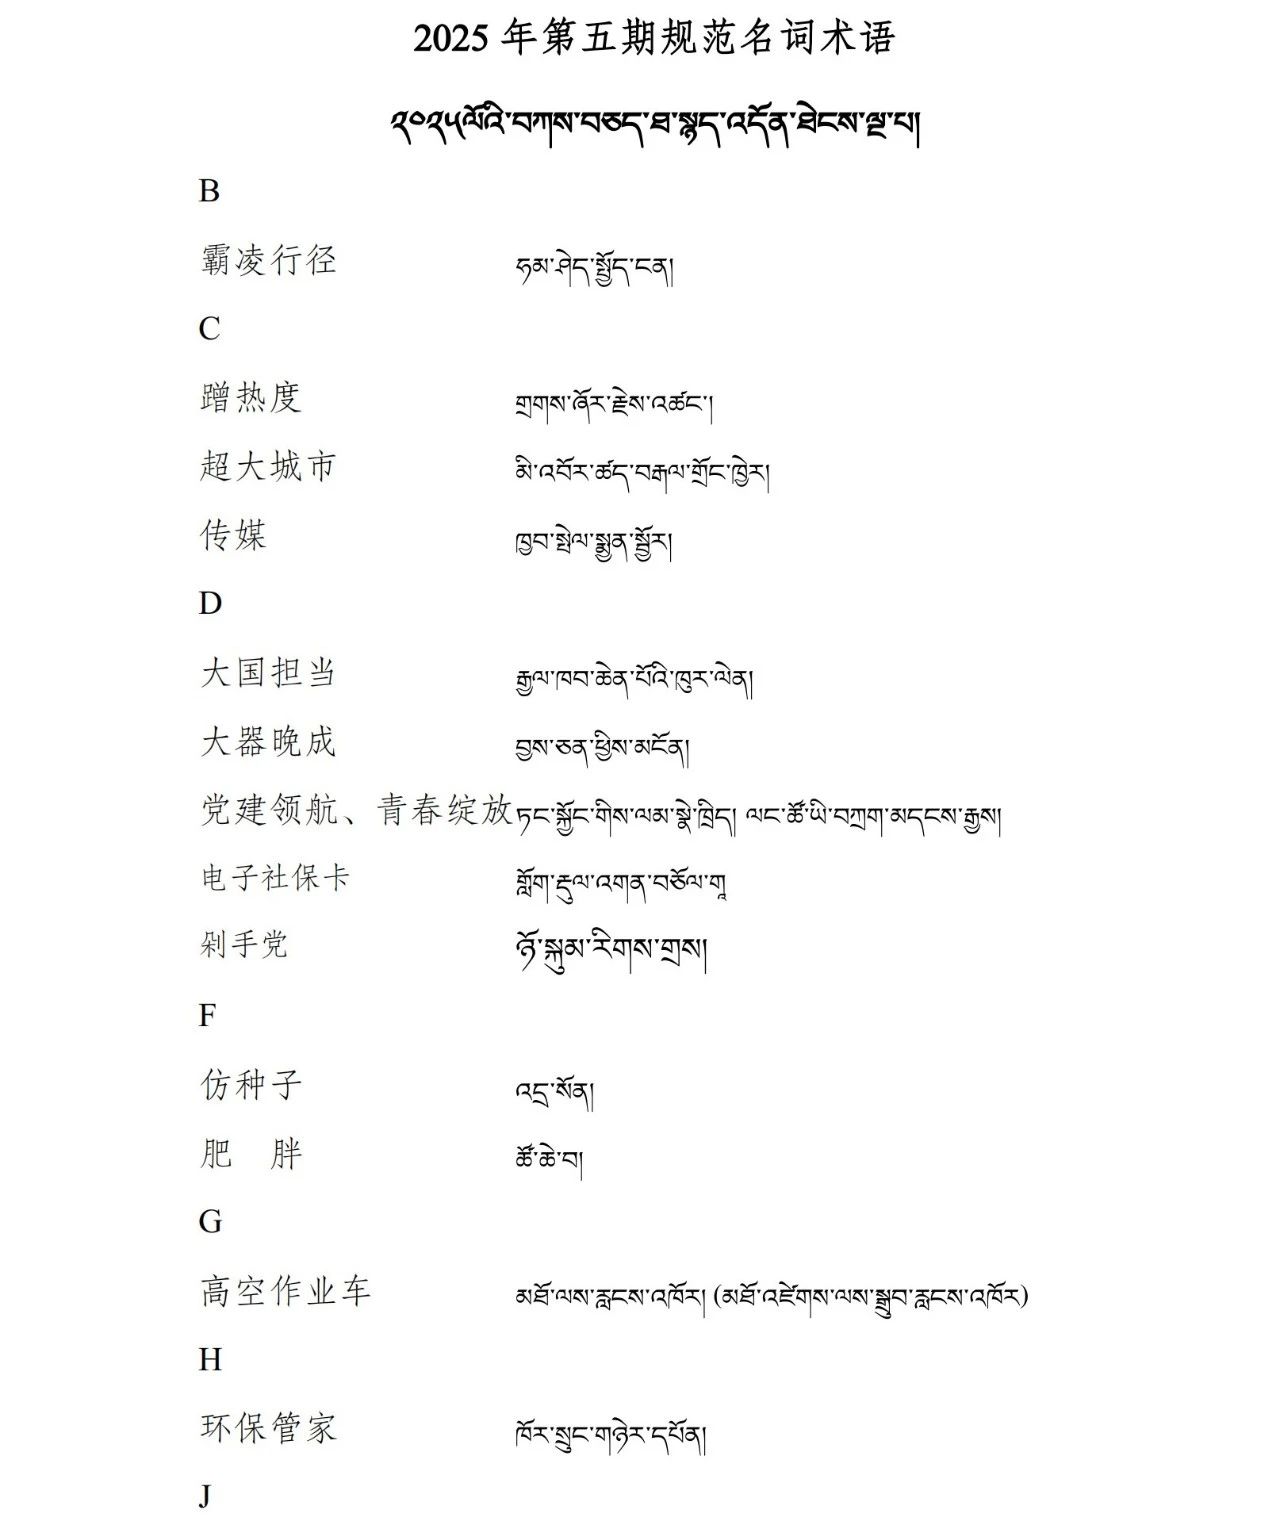 2025 年第五期规范名词术语
༢༠༢༥ལོའི་བཀས་བཅད་ཐ་སྙད་འདོན་ཐེངས་ལྔ་པ།
B
霸凌行径 ཧམ་ཤེད་སྤྱོད་ངན།
C
蹭热度 གྲགས་ཞོར་རྗེས་འཚང་།
超大城市 མི་འབོར་ཚད་བརྒལ་གྲོང་ཁྱེར།
传媒 ཁྱབ་སྤེལ་སྨྱན་སྦྱོར།
D
大国担当 རྒྱལ་ཁབ་ཆེན་པོའི་ཁུར་ལེན།
大器晚成 བྱས་ཅན་ཕྱིས་མངོན།
党建领航、青春绽放 ཏང་སྐྱོང་གིས་ལམ་སྣེ་ཁྲིད། ལང་ཚོ་ཡི་བཀྲག་མདངས་རྒྱས།
电子社保卡 གློག་རྡུལ་འགན་བཅོལ་གཱ
剁手党 ཉོ་སྐུམ་རིགས་གྲས།
F
仿种子 འདྲ་སོན།
肥　胖 ཚོ་ཆེ་བ།
G
高空作业车 མཐོ་ལས་རླངས་འཁོར། (མཐོ་འཛེགས་ལས་སྒྲུབ་རླངས་འཁོར)
H
环保管家 ཁོར་སྲུང་གཉེར་དཔོན།
J